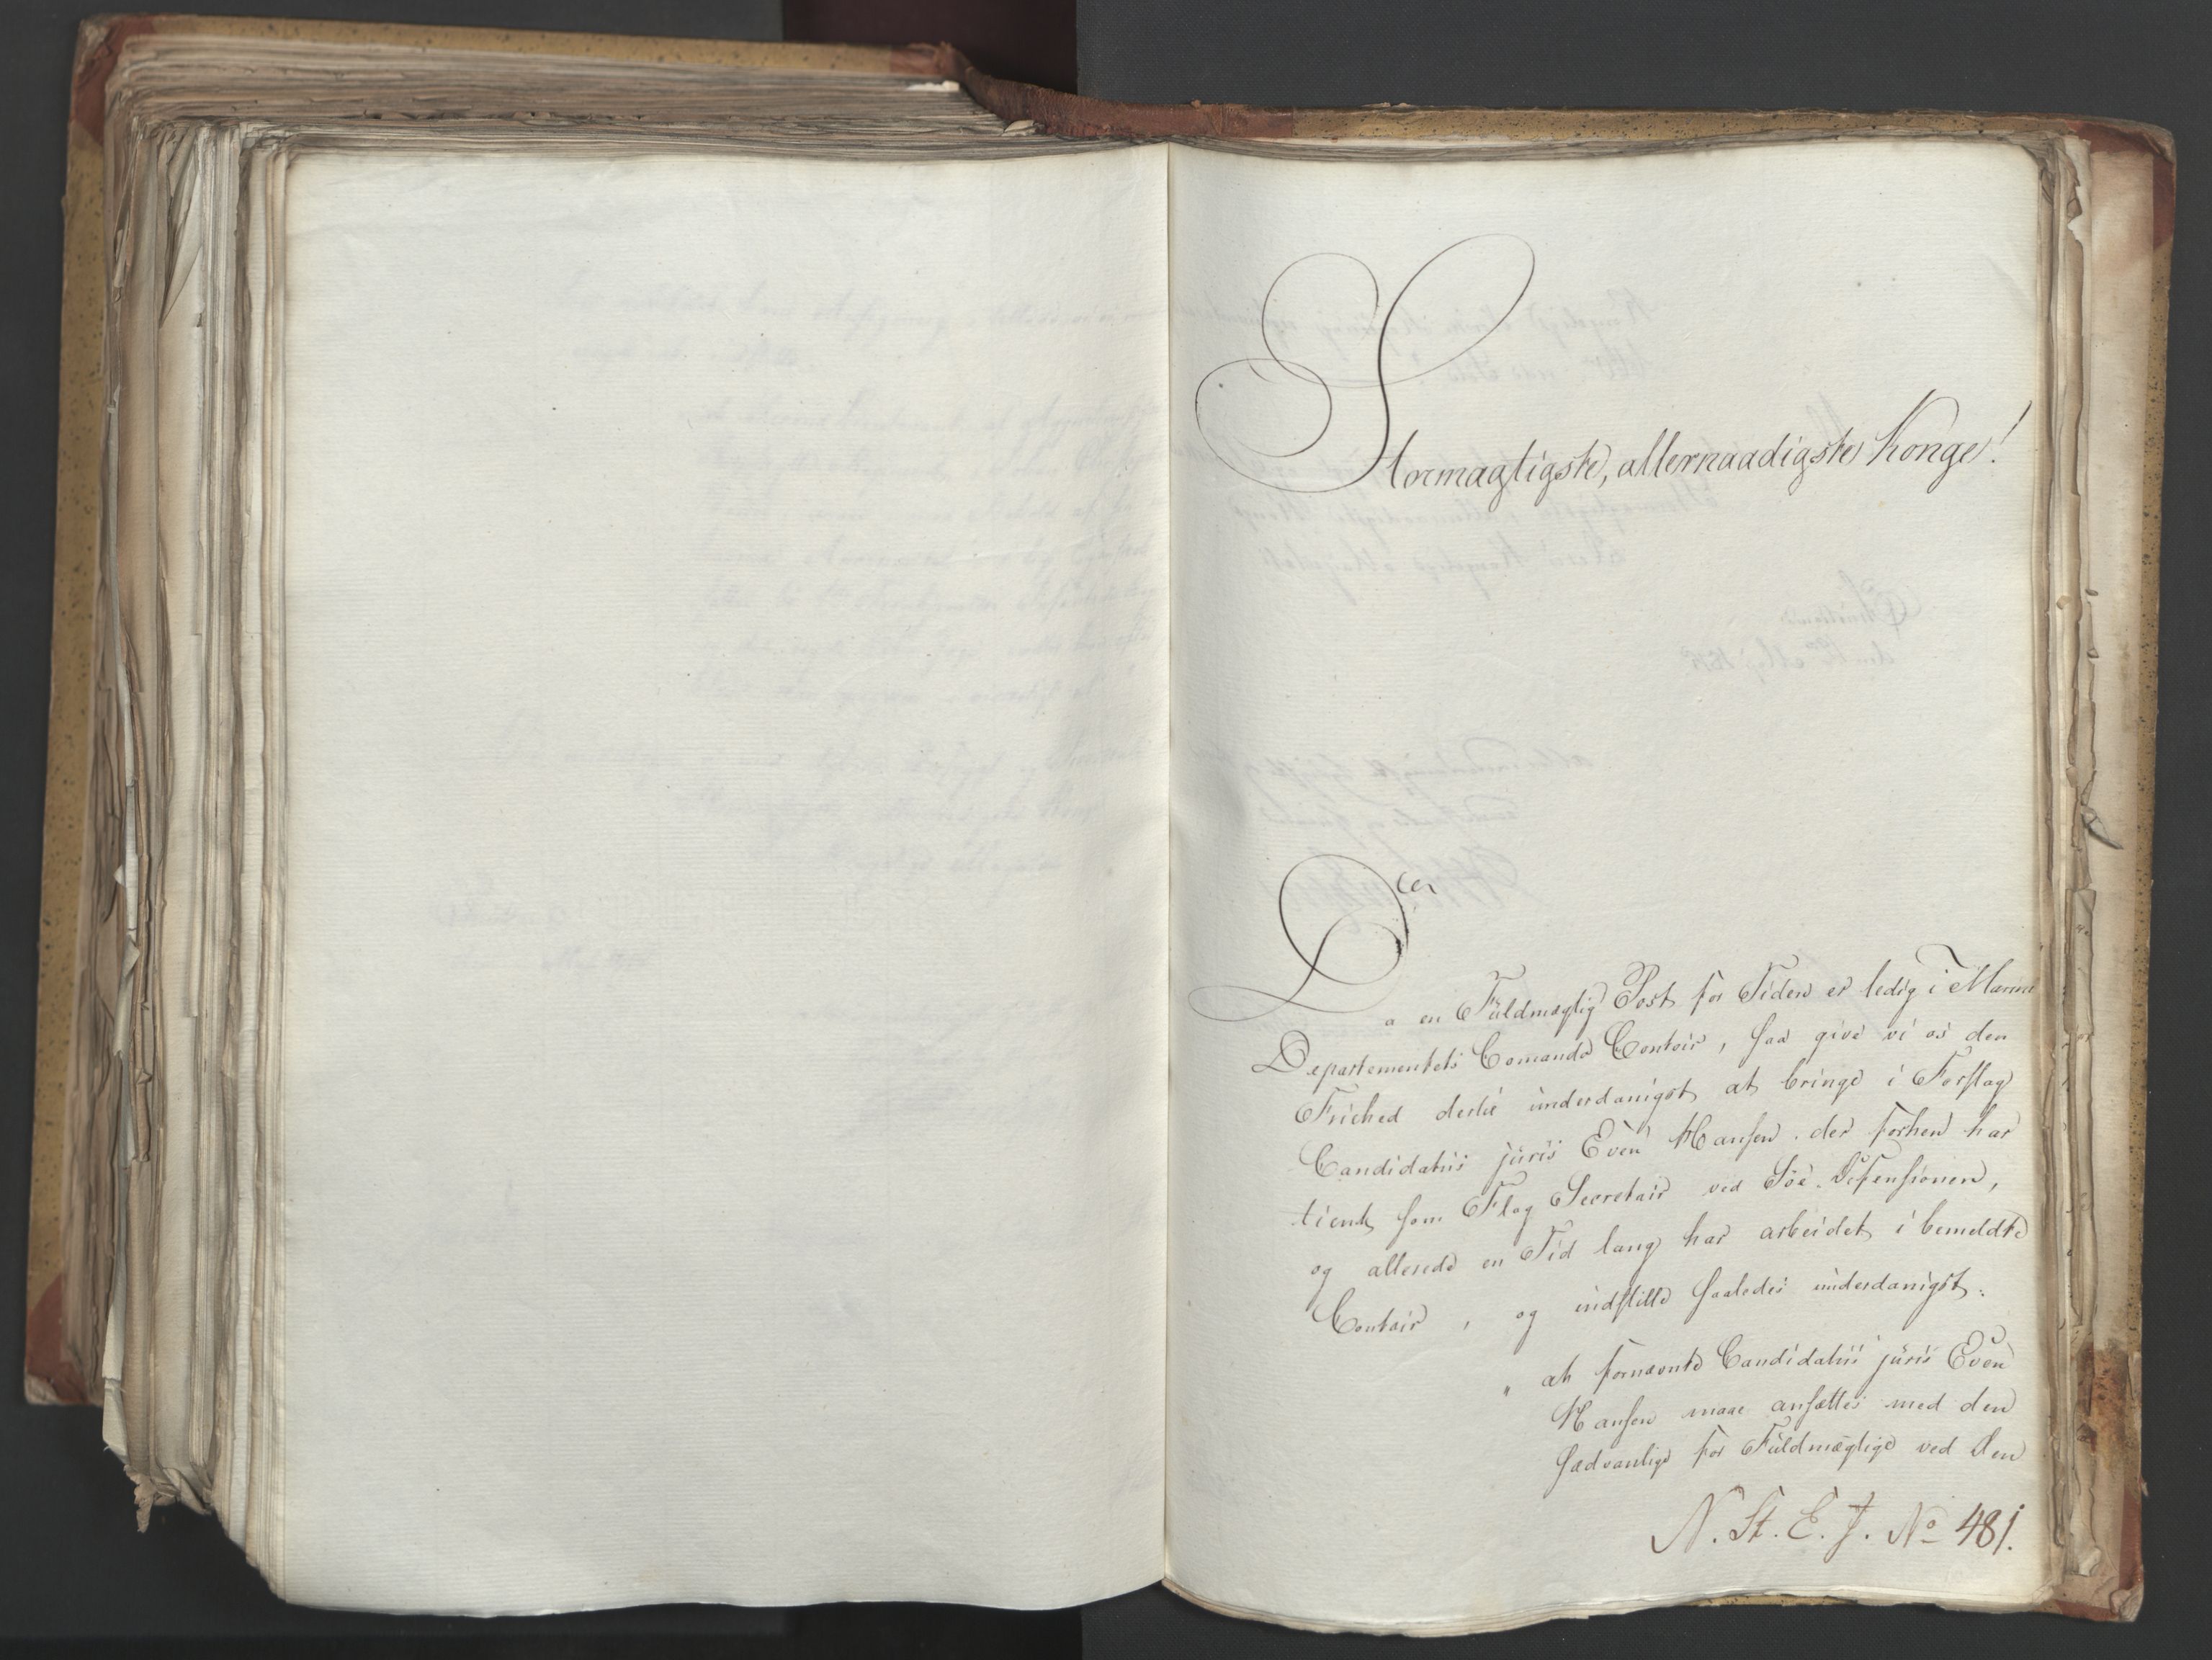 Stormagtigste, allernaadigste Konge!
Da en Fuldmægtig Post for Tiden er ledig i Marine
Departementets Comando Contoir, saa give vi os den
Friehed dertil underdanigst at bringe i Forslag
Candidatus juris Even Hansen, der forhen har
tient som Flag Secretair ved Söe-Defensionen,
og allerede en Tid lang har arbeidet i bemeldte
Contoir, og indstille saaledes underdanigst:
" at fornævnte Candidatus juris Even
Hansen maae ansættes med den
sædvanlige for Fuldmægtige ved den
N. St. E. J. No 481.